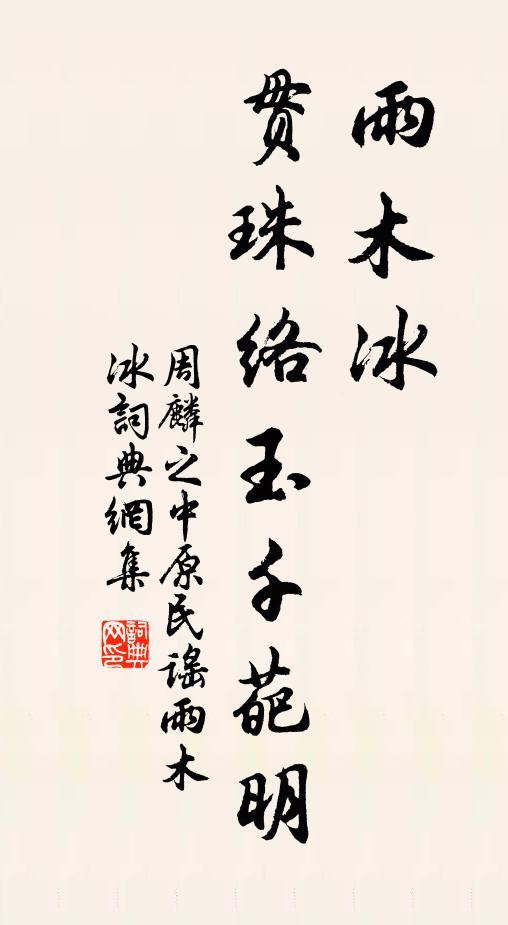 雨木冰
貫珠絡玉千葩明
周麟之中原民謠雨木
冰詞典網集
詞典網印